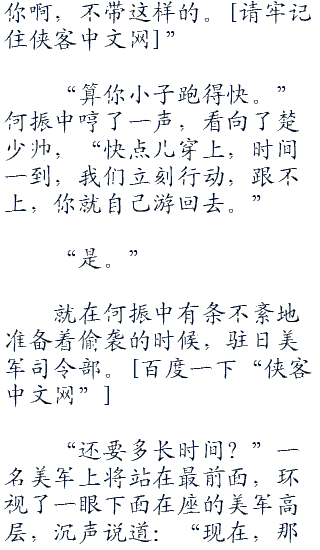 你啊，不带这样的。[请牢记
住侠客中文网]”
“算你小子跑得快。”
何振中哼了一声，看向了楚
少帅，“快点儿穿上，时间
一到，我们立刻行动，跟不
上，你就自己游回去。”
“是。”
就在何振中有条不紊地
准备着偷袭的时候，驻日美
军司令部。[百度一下“侠客
中文网”]
“还要多长时间？”一
名美军上将站在最前面，环
视了一眼下面在座的美军高
层，沉声说道：“现在，那